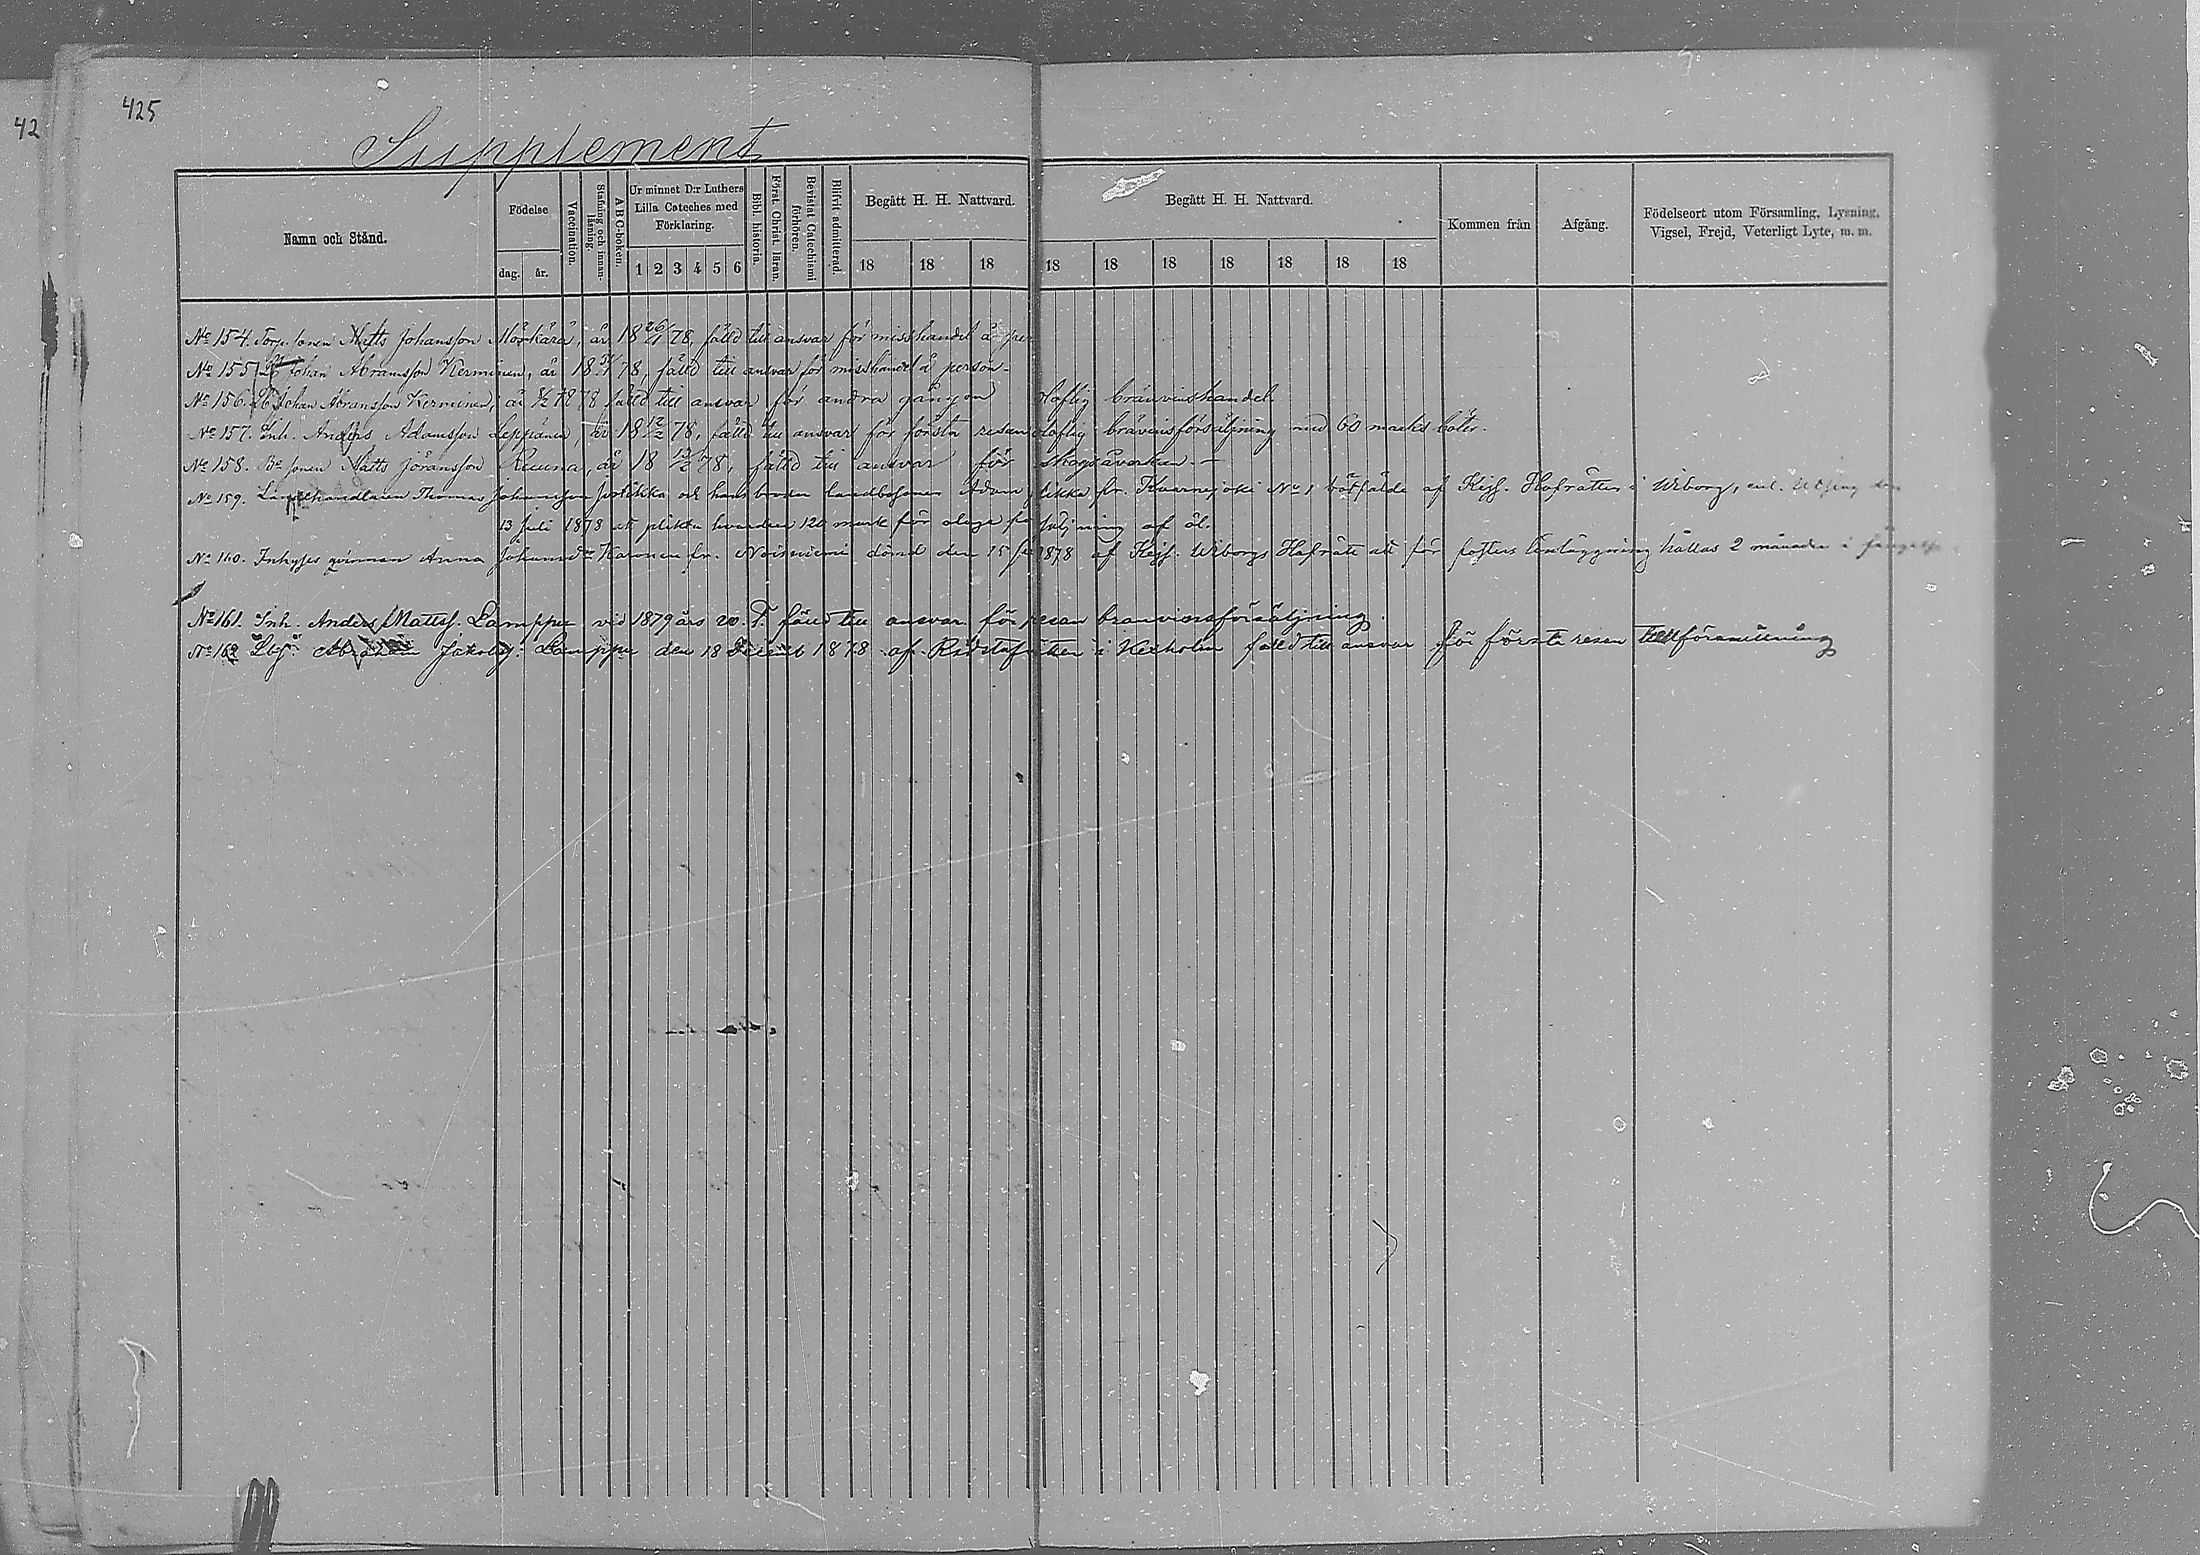 42
425
Supplement
Namn och Stånd.
Födelse
dag.
år.
Vaccination.
Stafning och innan-läsning.
ABC-boken.
Ur minnet D:r Luthers Lilla Cateches med Förklaring.
1 2 3 4 5 6
Bibl. historia.
Först. Christ. läran.
Bevistat Catechismi förhören.
Blifvit admitterad.
Begått H. H. Nattvard.
18 18 18
Begått H. H. Nattvard.
18 18 18 18 18 18 18
Kommen från
Afgång.
Födelseort utom Församling, Lysning, Vigsel, Frejd, Veterligt Lyte, m. m.
No 154. Torp. sonen Matts Johansson är 18 26/1 78, fälld till ansvar för misshandel å per
No 155 Johan Abramsson Kerminen, är 18 78, fälld till ansvar för misshandel å person.
No 156. Johan Abramsson Kerminen, är 1878 fälld till ansvar för andra gången olaflig bränvinshandel
No 157. Inh. Anders Adamsson Leppänen, är 18 12/2 78, fälld till ansvar för första resan olaflig brävinsförsäljning med 60 marks böter.
No 158. Bd sonen Matts Jöransson Ruuna, är 18 78, fälld till ansvar för skogsåverkan. –
No 159. Thomas Johansson och hans broder landbosonen Adam fr. No 1 bötfälde af Kejs. Hofrätten i Wiborg, enl. Utslag den
13 Juli 1878 att plikta hvardera 120 mark för olaga försäljning af öl.
No 160. Inhyses qvinnan Anna Johansdr fr. Noisniemi dömd den 15 1878 af Kejs. Wiborgs Hofrätt att för fosters henläggning hållas 2 månader i fängelse
No 161. Inh. Anders Mattss. Lamppu vid 1879 års v. T. fälld till ansvar för resan bränvinsförsäljning.
No 162 Lbs. Abraham Jakobs. Lamppu den 18 1878 af Rådstufrätten i Kexholm fälld till ansvar för första resan tullförsnillning